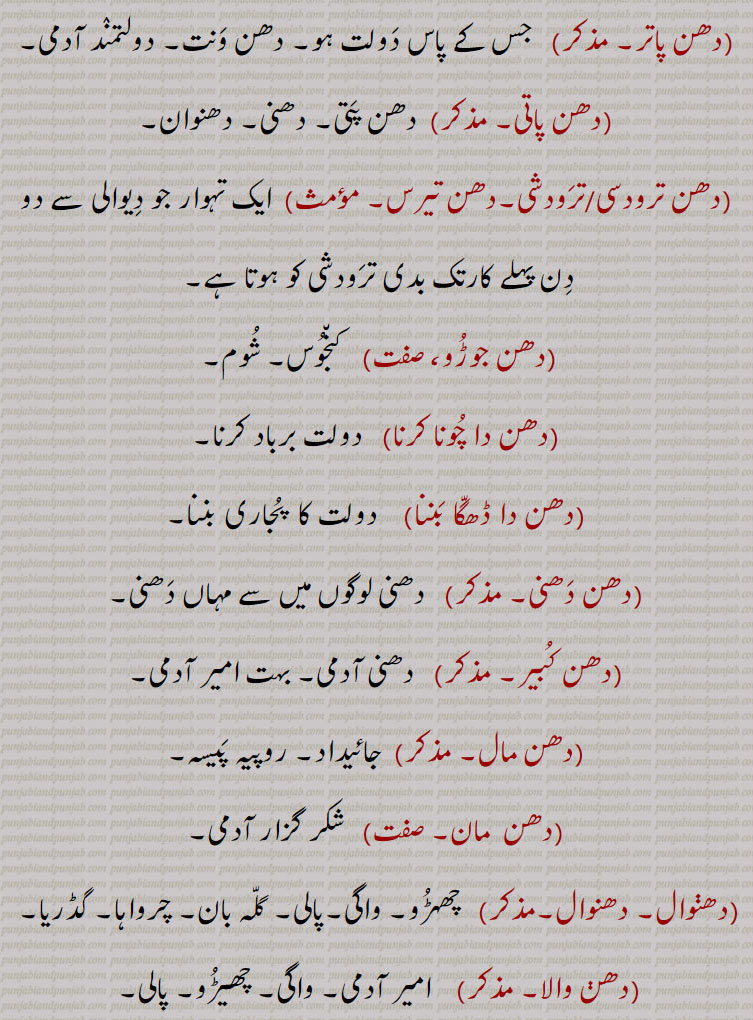 (دھن پاتر۔ مذکر) جس کے پاس دَولت ہو۔ دھن وَنت۔ دولتمنْد آدمی۔
(دھن پاتی۔ مذکر) دھن پَتی۔ دھنی۔ دھنوان۔
(دھن ترودسی/ترَودشی۔دھن تیرس۔ مؤمث) ایک تہوار جو دِیوالی سے دو
دِن پہلے کارتک بدی ترَودشی کو ہوتا ہے۔
(دھن جوڑُو، صفت) کنجّوُس۔ شُوم۔
(دھن دا چُونا کرنا) دولت برباد کرنا۔
(دھن دا ڈھگّا بَننا) دولت کا پُجاری بننا۔
(دھن دَھنی۔ مذکر) دھنی لوگوں میں سے مہاں دَھنی۔
(دھن کُبیر۔ مذکر) دھنی آدمی۔ بہت امیر آدمی۔
(دھن مال۔ مذکر) جائیداد۔ روپیہ پَیسہ۔
(دھن مان۔ صفت) شکر گزار آدمی۔
(دھنْوال۔ دھنوال۔مذکر) چھہڑُو۔ واگی۔پالی۔ گلّہ بان۔ چرواہا۔ گڈریا۔
(دھن والا۔ مذکر) امیر آدمی۔ واگی۔ چھیڑُو۔ پالی۔